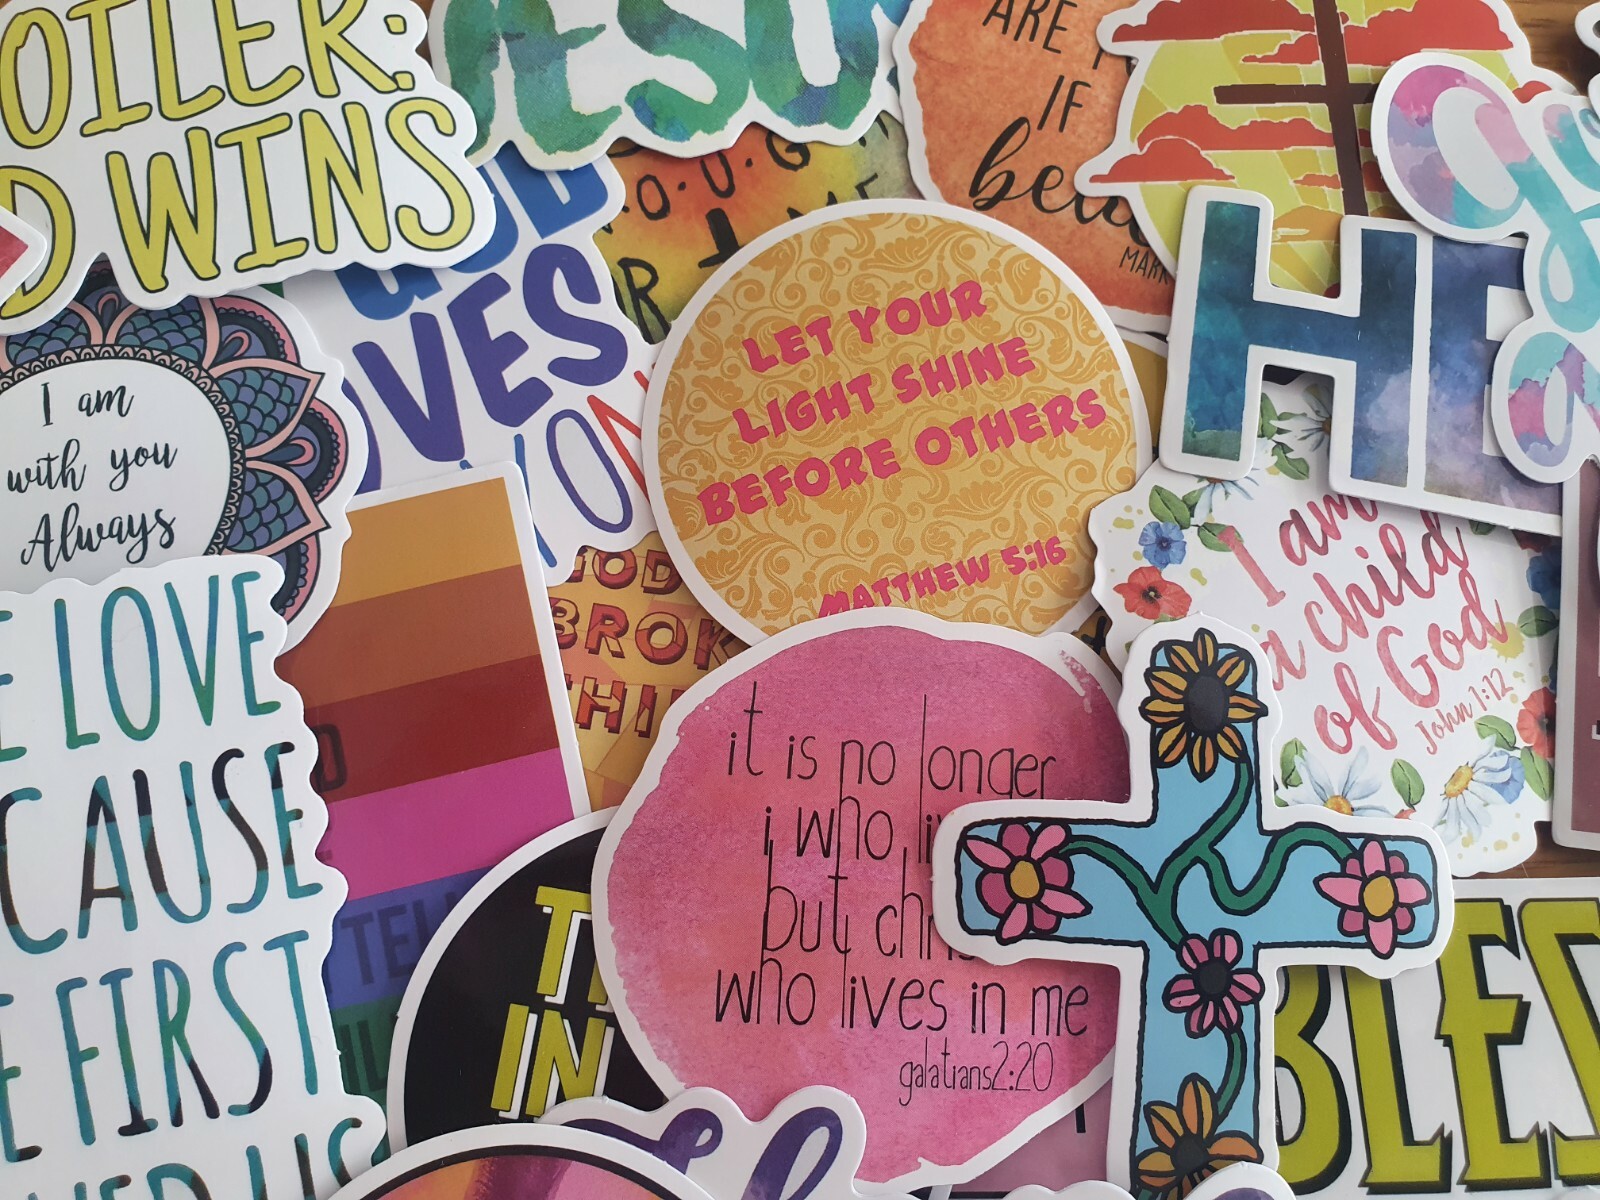 OILER:
D WINS
JESU
ARE
IF
MARK
O·U·G
ME
GOD
VES
YON
I am
with you
Always
LET YOUR
LIGHT SHINE
BEFORE OTHERS
MATTHEW 5:16
HE
I am
a child
of God
John 1:12
GOD
BROK
THI
E LOVE
CAUSE
E FIRST
VED US
TELL
T
IN
it is no longer
i who li
but chr
who lives in me
galatians2:20
BLES